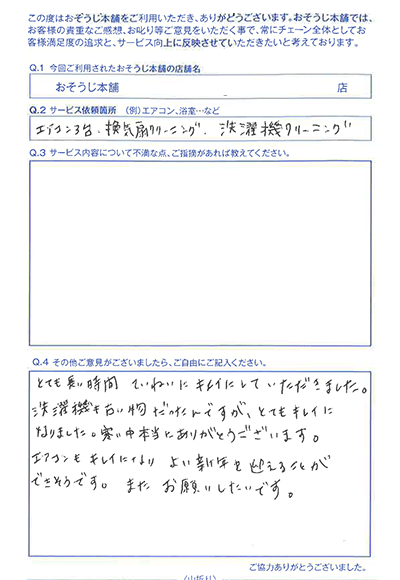 この度はおそうじ本舗をご利用いただき、ありがとうございます。おそうじ本舗では、
お客様の貴重なご感想、お叱り等ご意見をいただく事で、常にチェーン全体としてお
客様満足度の追求と、サービス向上に反映させていただきたいと考えております。
Q.1 今回ご利用されたおそうじ本舗の店舗名
おそうじ本舗 店
Q.2 サービス依頼箇所 (例)エアコン、浴室…など
エアコン3台、換気扇クリーニング、洗濯機クリーニング
Q.3 サービス内容について不満な点、ご指摘があれば教えてください。
Q.4 その他ご意見がございましたら、ご自由にご記入ください。
とても長い時間 ていねいに キレイにして いただきました。
洗濯機も古い物だったんですが、とてもキレイに
なりました。寒い中本当にありがとうございます。
エアコンもキレイになり よい新年を迎えることが
できそうです。また お願いしたいです。
ご協力ありがとうございました。